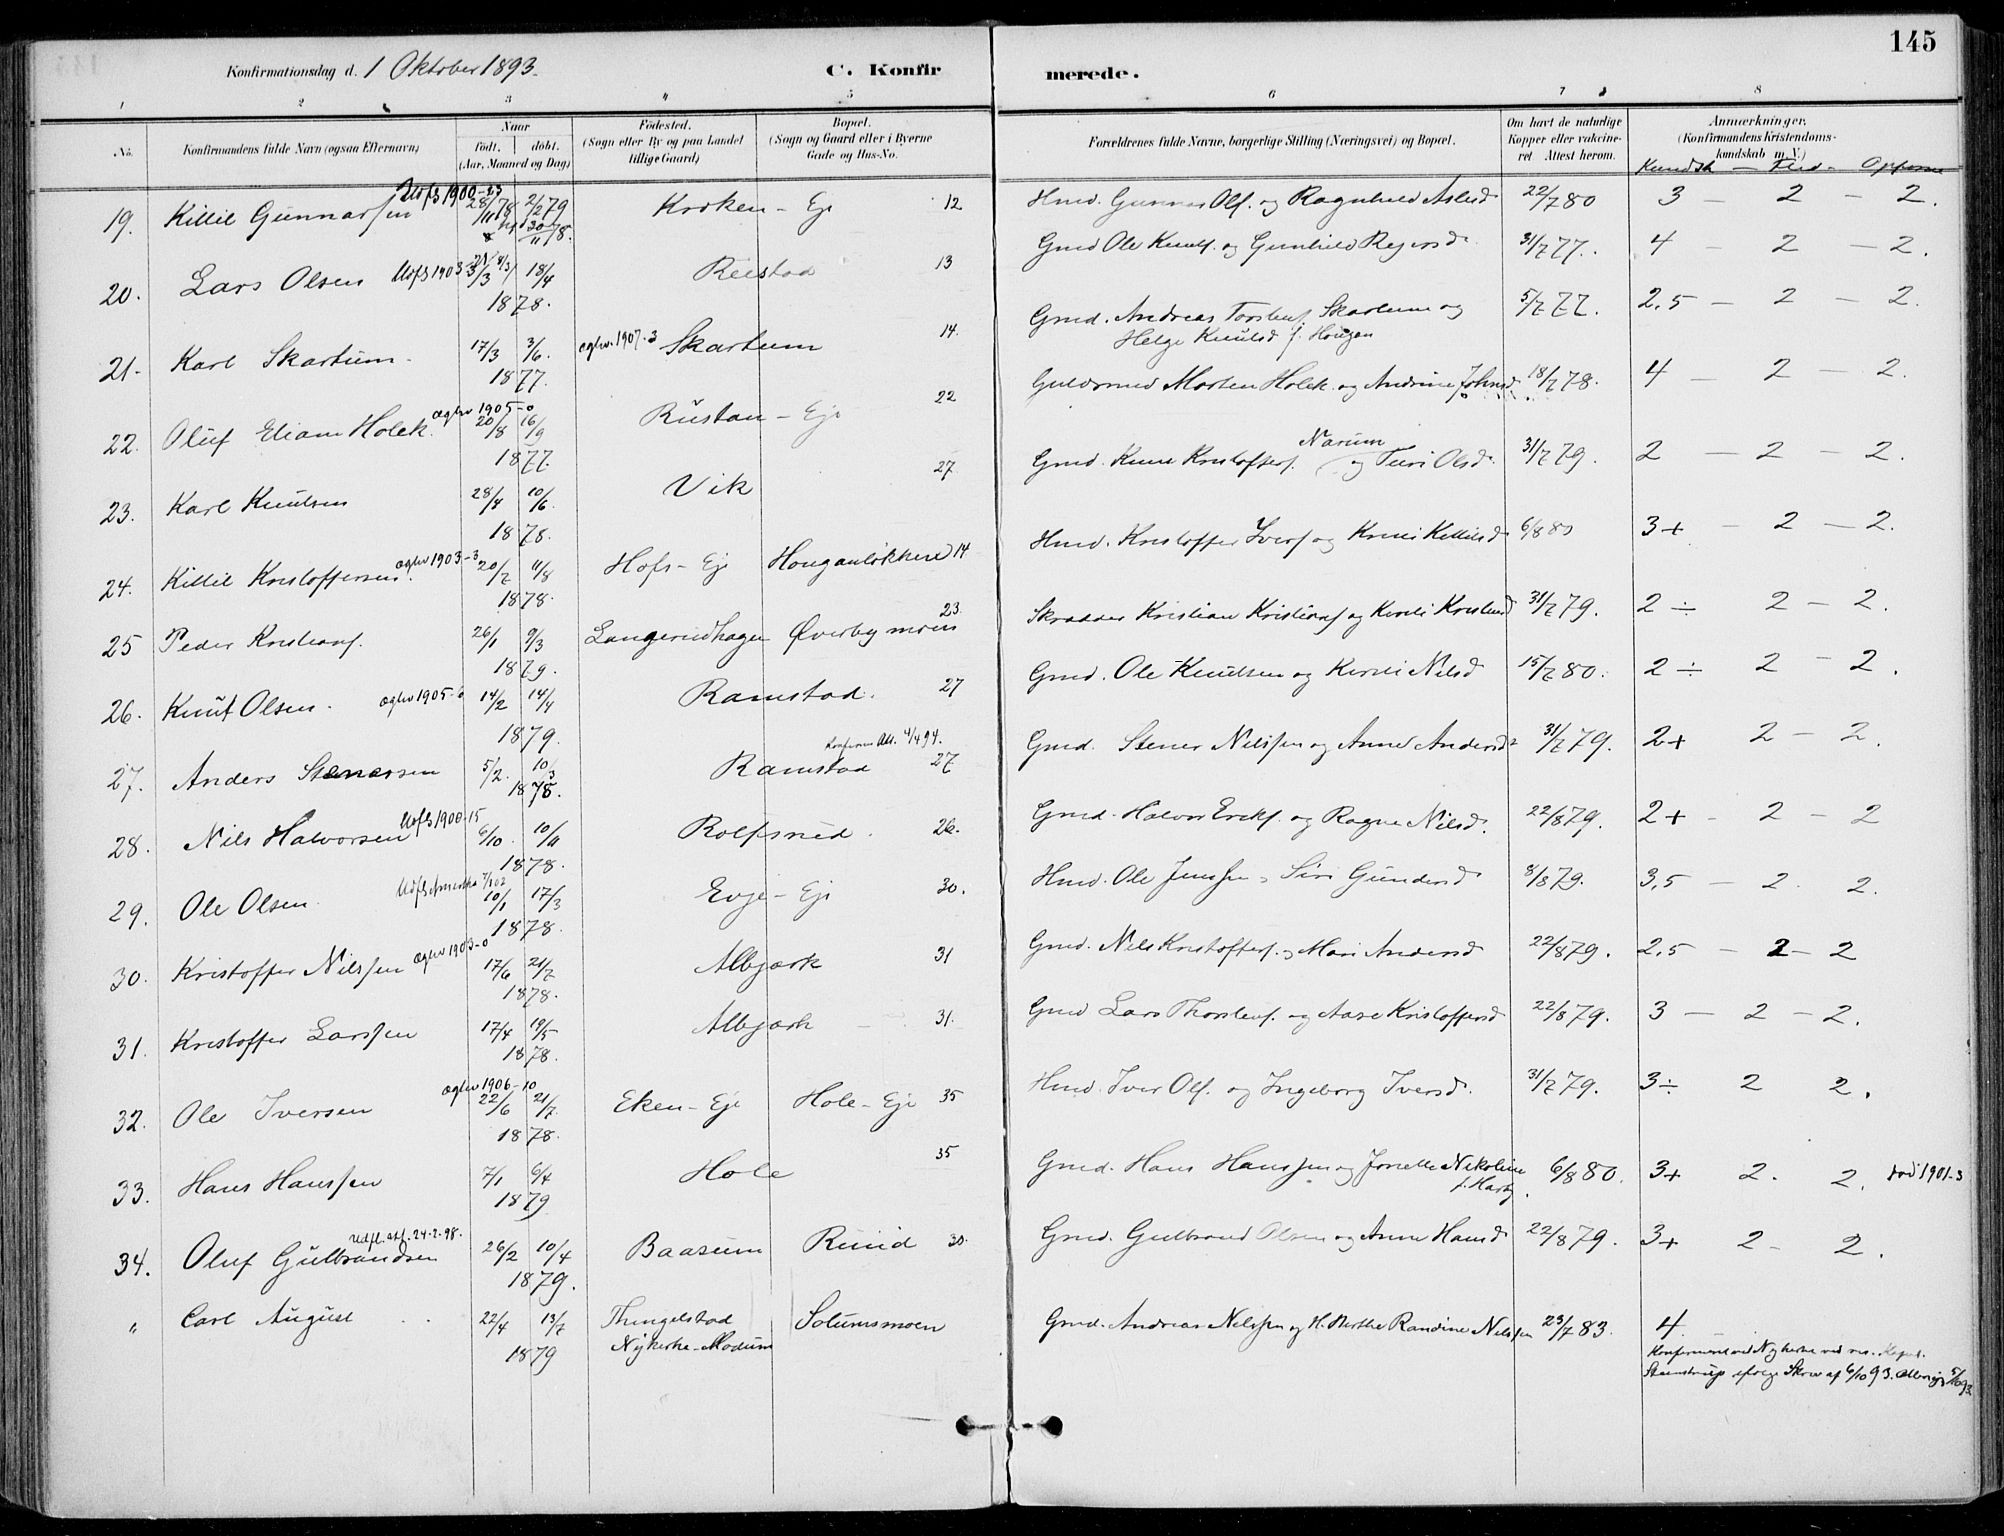 145
Konfirmationsdag d. 1 Oktober 1893.
C. Konfirmerede.
1 2 3 4 5 6 7 8
No.
Konfirmandens fulde Navn (ogsaa Efternavn)
Naar
født. døbt.
(Aar, Maaned og Dag)
Fødested.
(Sogn eller By og paa Landet
tillige Gaard)
Bopæl.
(Sogn og Gaard eller i Byerne
Gade og Hus-No.
Forældrenes fulde Navne, borgerlige Stilling (Næringsvei) og Bopæl.
Om havt de naturlige
Kopper eller vakcine-
ret Attest herom.
Anmærkninger.
(Konfirmandens Kristendoms-
kundskab m. V.)
Kundsk — Flid — Opførsel
19. Killil Gunnarsen Udfl 1900-23 28/11 78 2/2 79 Kroken - Eje 12 Hmd. Gunnar Ols. og Ragnhild Aslesd 22/7 80 3 — 2 — 2.
20. Lars Olsen Udfl 1903 3/3 18/4 1878. Reistad 13 Gmd Ole Knuts. og Gunhild 31/7 77. 4 — 2 — 2.
21. Karl Skartum 17/3 3/6. 1877. Skartum 14. Gmd. Andreas Torstens. Skartum og
Helge Knutsd f. Hougen 5/7 77. 2,5 — 2 — 2.
22. Oluf Eliam Holck. 20/8 16/9 1877. Rustan - Eje 22 Morten Holck og Andrine Johnsd. 18/7 78. 4 — 2 — 2.
23. Karl Knutsen 28/4 10/6. 1878. Vik 27. Gmd. Knut Kristoffers. Narum og Turi Olsd. 31/7 79. 2 — 2 — 2.
24. Killil Kristoffersen. 20/7 11/8 1878. Hofs - Eje Houganløkken 14 Hmd. Kristoffer Ivers. og Killilsd 6/8 80 3+ — 2 — 2.
25 Peder Kristians. 26/1 9/3 1879. Langerudhagen Øverbymoen 23. Skrædder Kristian Kristians. og Kirsti 31/7 79. 2 ÷ 2 — 2.
26. Knut Olsen. 14/2 14/4 1879. Ramstad. 27 Gmd. Ole Knutsen og Kirsti Nilsd 15/7 80. 2 ÷ 2 — 2.
27. Anders Stenersen 5/2. 10/3 1878. Ramstad 27 Gmd. Stener Nilssen og Anne Andersd 31/7 79. 2+ 2 — 2.
28. Nils Halvorsen Udfl 1900-15 6/10. 10/11 1878. Rolfsrud. 26. Gmd. Halvor Eriks. og Ragne Nilsd. 22/8 79. 2+ — 2 — 2
29. Ole Olsen. 10/1 17/3 1878. Evje - Eje 30. Hmd. Ole Jenssen og Siri Gundersd 8/8 79. 3,5 — 2. 2.
30. Kristoffer Nilssen 17/6 21/7 1878. Albjerk 31 Gmd. Nils Kristoffers. og Mari Andersd 22/8 79. 2,5 — 2 — 2
31. Kristoffer Larssen 17/4 19/5 1878. Albjerk 31. Gmd Lars Thorstens. og Aase Kristoffersd 22/8 79. 3 — 2 — 2.
32. Ole Iversen 22/6 21/7. 1878. Eken - Eje Hole - Eje 35 Hmd. Iver Ols. og Ingeborg Iversd. 31/7 79. 3 ÷ 2 2.
33. Hans Hanssen 7/1 6/4 1879 Hole 35 Gmd. Hans Hanssen og Nikoline 6/8 80. 3+ 2. 2. død 1901-3
34. Oluf Gulbrandsen Udfl. att. 24-2-98. 26/2 10/4 1879. Baasum Ruud 30. Gmd. Gulbrand Olsen og Anne Hansd 22/8 79. 3+ 2 — 2.
" Carl August 22/4 13/7 1879 Thingelstad
Nykirke - Modum Solumsmoen Gmd. Andreas Nilssen og H. Berthe Randine Nilssen 23/7 83. 4.
Konfirmeret ved Nykirke ved res. Kapel.
Steenstrup ifølge Skriv af 6/10 93.